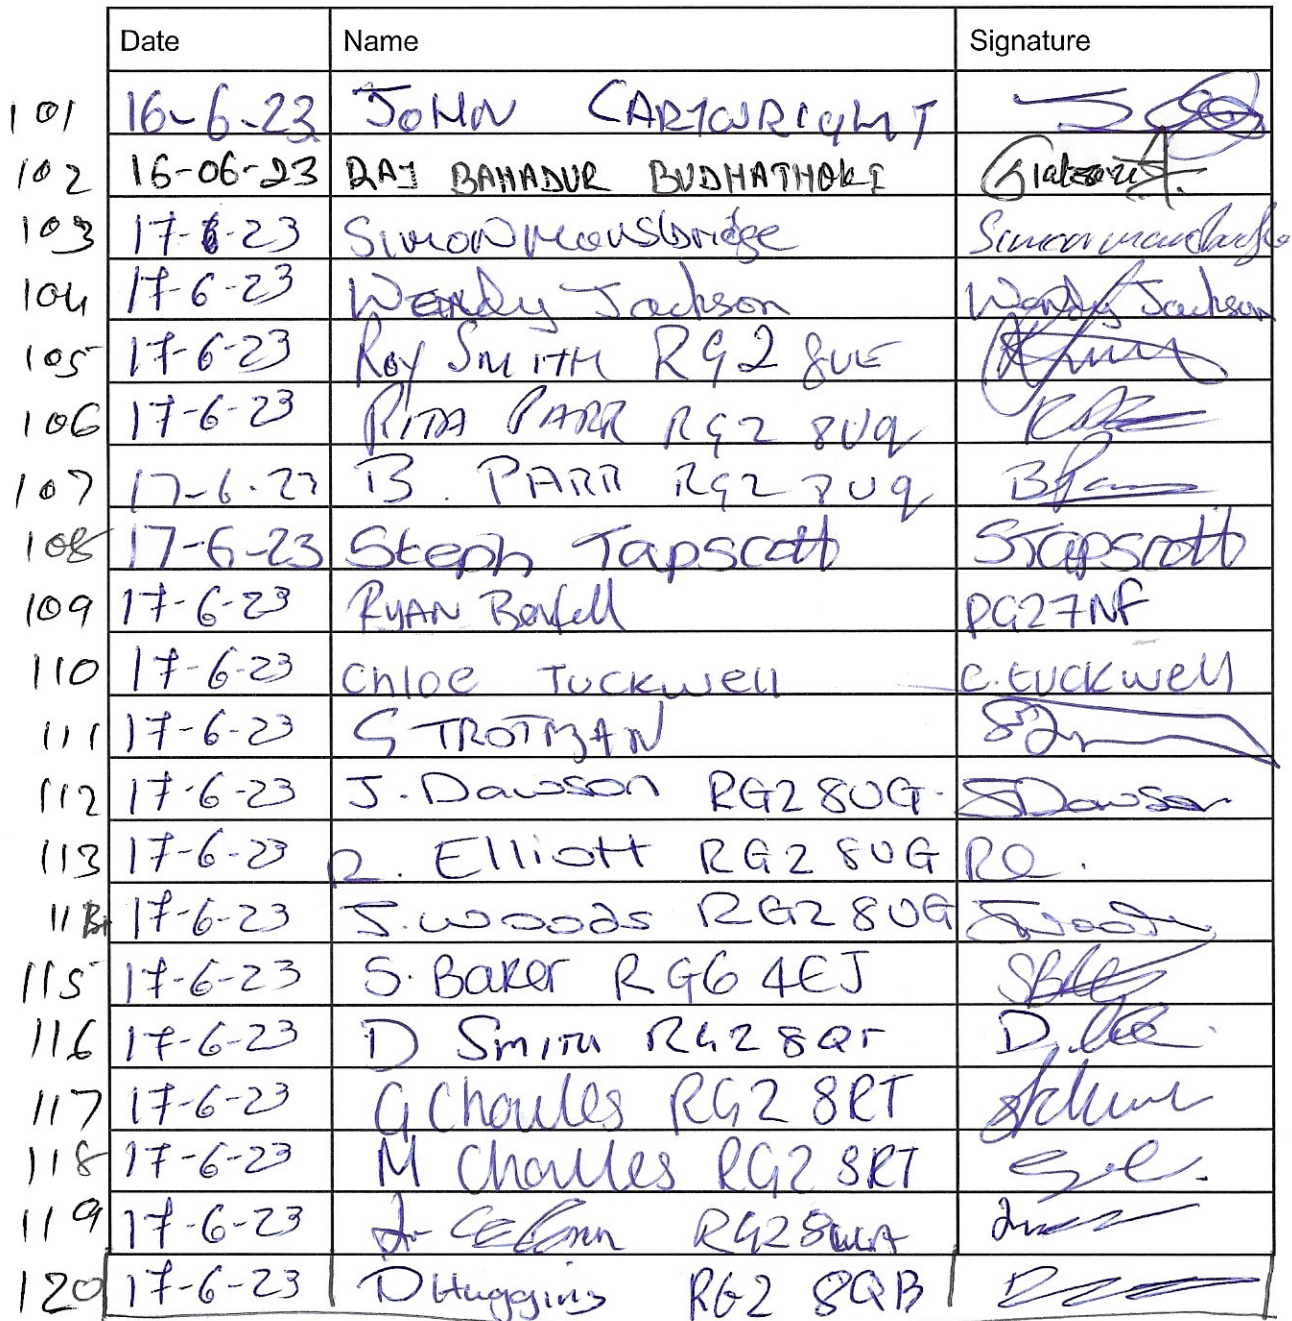 Date Name Signature
101 16-6-23 JOHN CARTWRIGHT
102 16-06-23 RAJ BAHADUR BUDHATHOKI
103 17-6-23 Simon Mousbridge
104 17-6-23 Wendy Jackson Wendy Jackson
105 17-6-23 Roy SMITH RG2 8UE
106 17-6-23 RITA PARR RG2 8UQ
107 17-6-23 B. PARR RG2 8UQ B Parr
108 17-6-23 Steph Tapscott STapscott
109 17-6-23 RYAN RG27NF
110 17-6-23 Chloe Tuckwell C.tuckwell
111 17-6-23 G TROTMAN
112 17-6-23 J. Dawson RG2 8UG. JDawson
113 17-6-23 R. Elliott RG2 8UG RE.
114 17-6-23 J. Woods RG2 8UG JWoods
115 17-6-23 S. Baker RG6 4EJ
116 17-6-23 D Smith RG2 8QT D.
117 17-6-23 G Choules RG2 8RT
118 17-6-23 M Choules RG2 8RT
119 17-6-23 RG2
120 17-6-23 D Huggins RG2 8QB